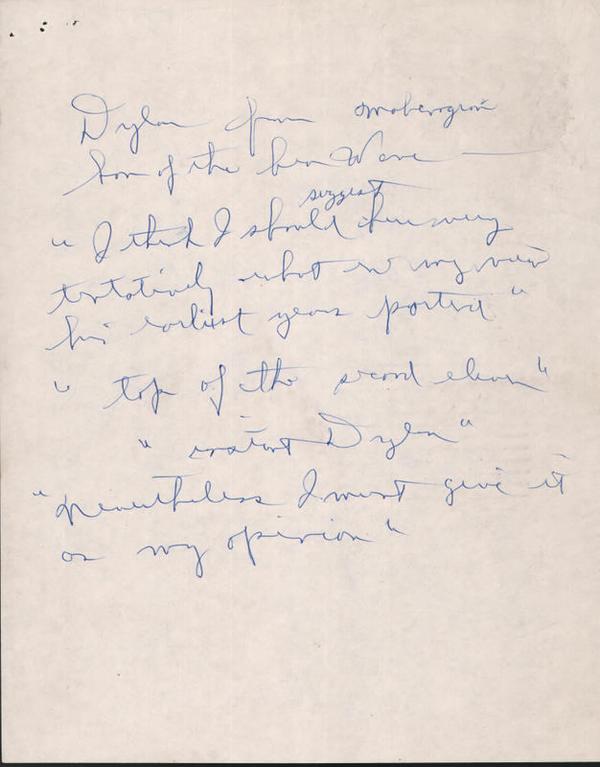 Dylan from
Son of the Sea Wave
suggest
" I think I should here very
tentatively what in my view
his earliest years portend "
" top of the second eleven "
" instant Dylan "
" Nevertheless I must give it
as my opinion "